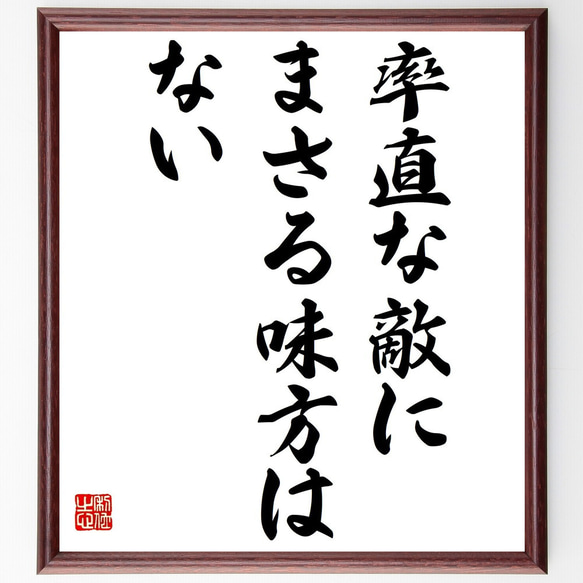 率直な敵に
まさる味方は
ない